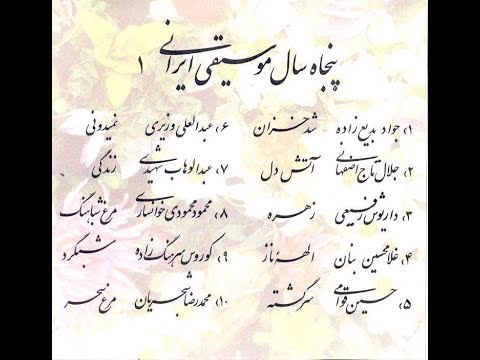 پنجاه سال موسیقی ایرانی ۱
۱، جواد بدیع زاده شد خزان
۲، جلال تاج اصفهانی آتش دل
۳، داریوش رفیعی زهره
۴، غلامحسین بنان الههٔ ناز
۵، حسین قوامی سرگشته
۶، عبدالعلی وزیری نمیدونی
۷، عبدالوهاب شهیدی زندگی
۸، محمود محمودی خوانساری مرغ شباهنگ
۹، کوروس سرهنگ زاده شبگرد
۱۰، محمدرضا شجریان مرغ سحر